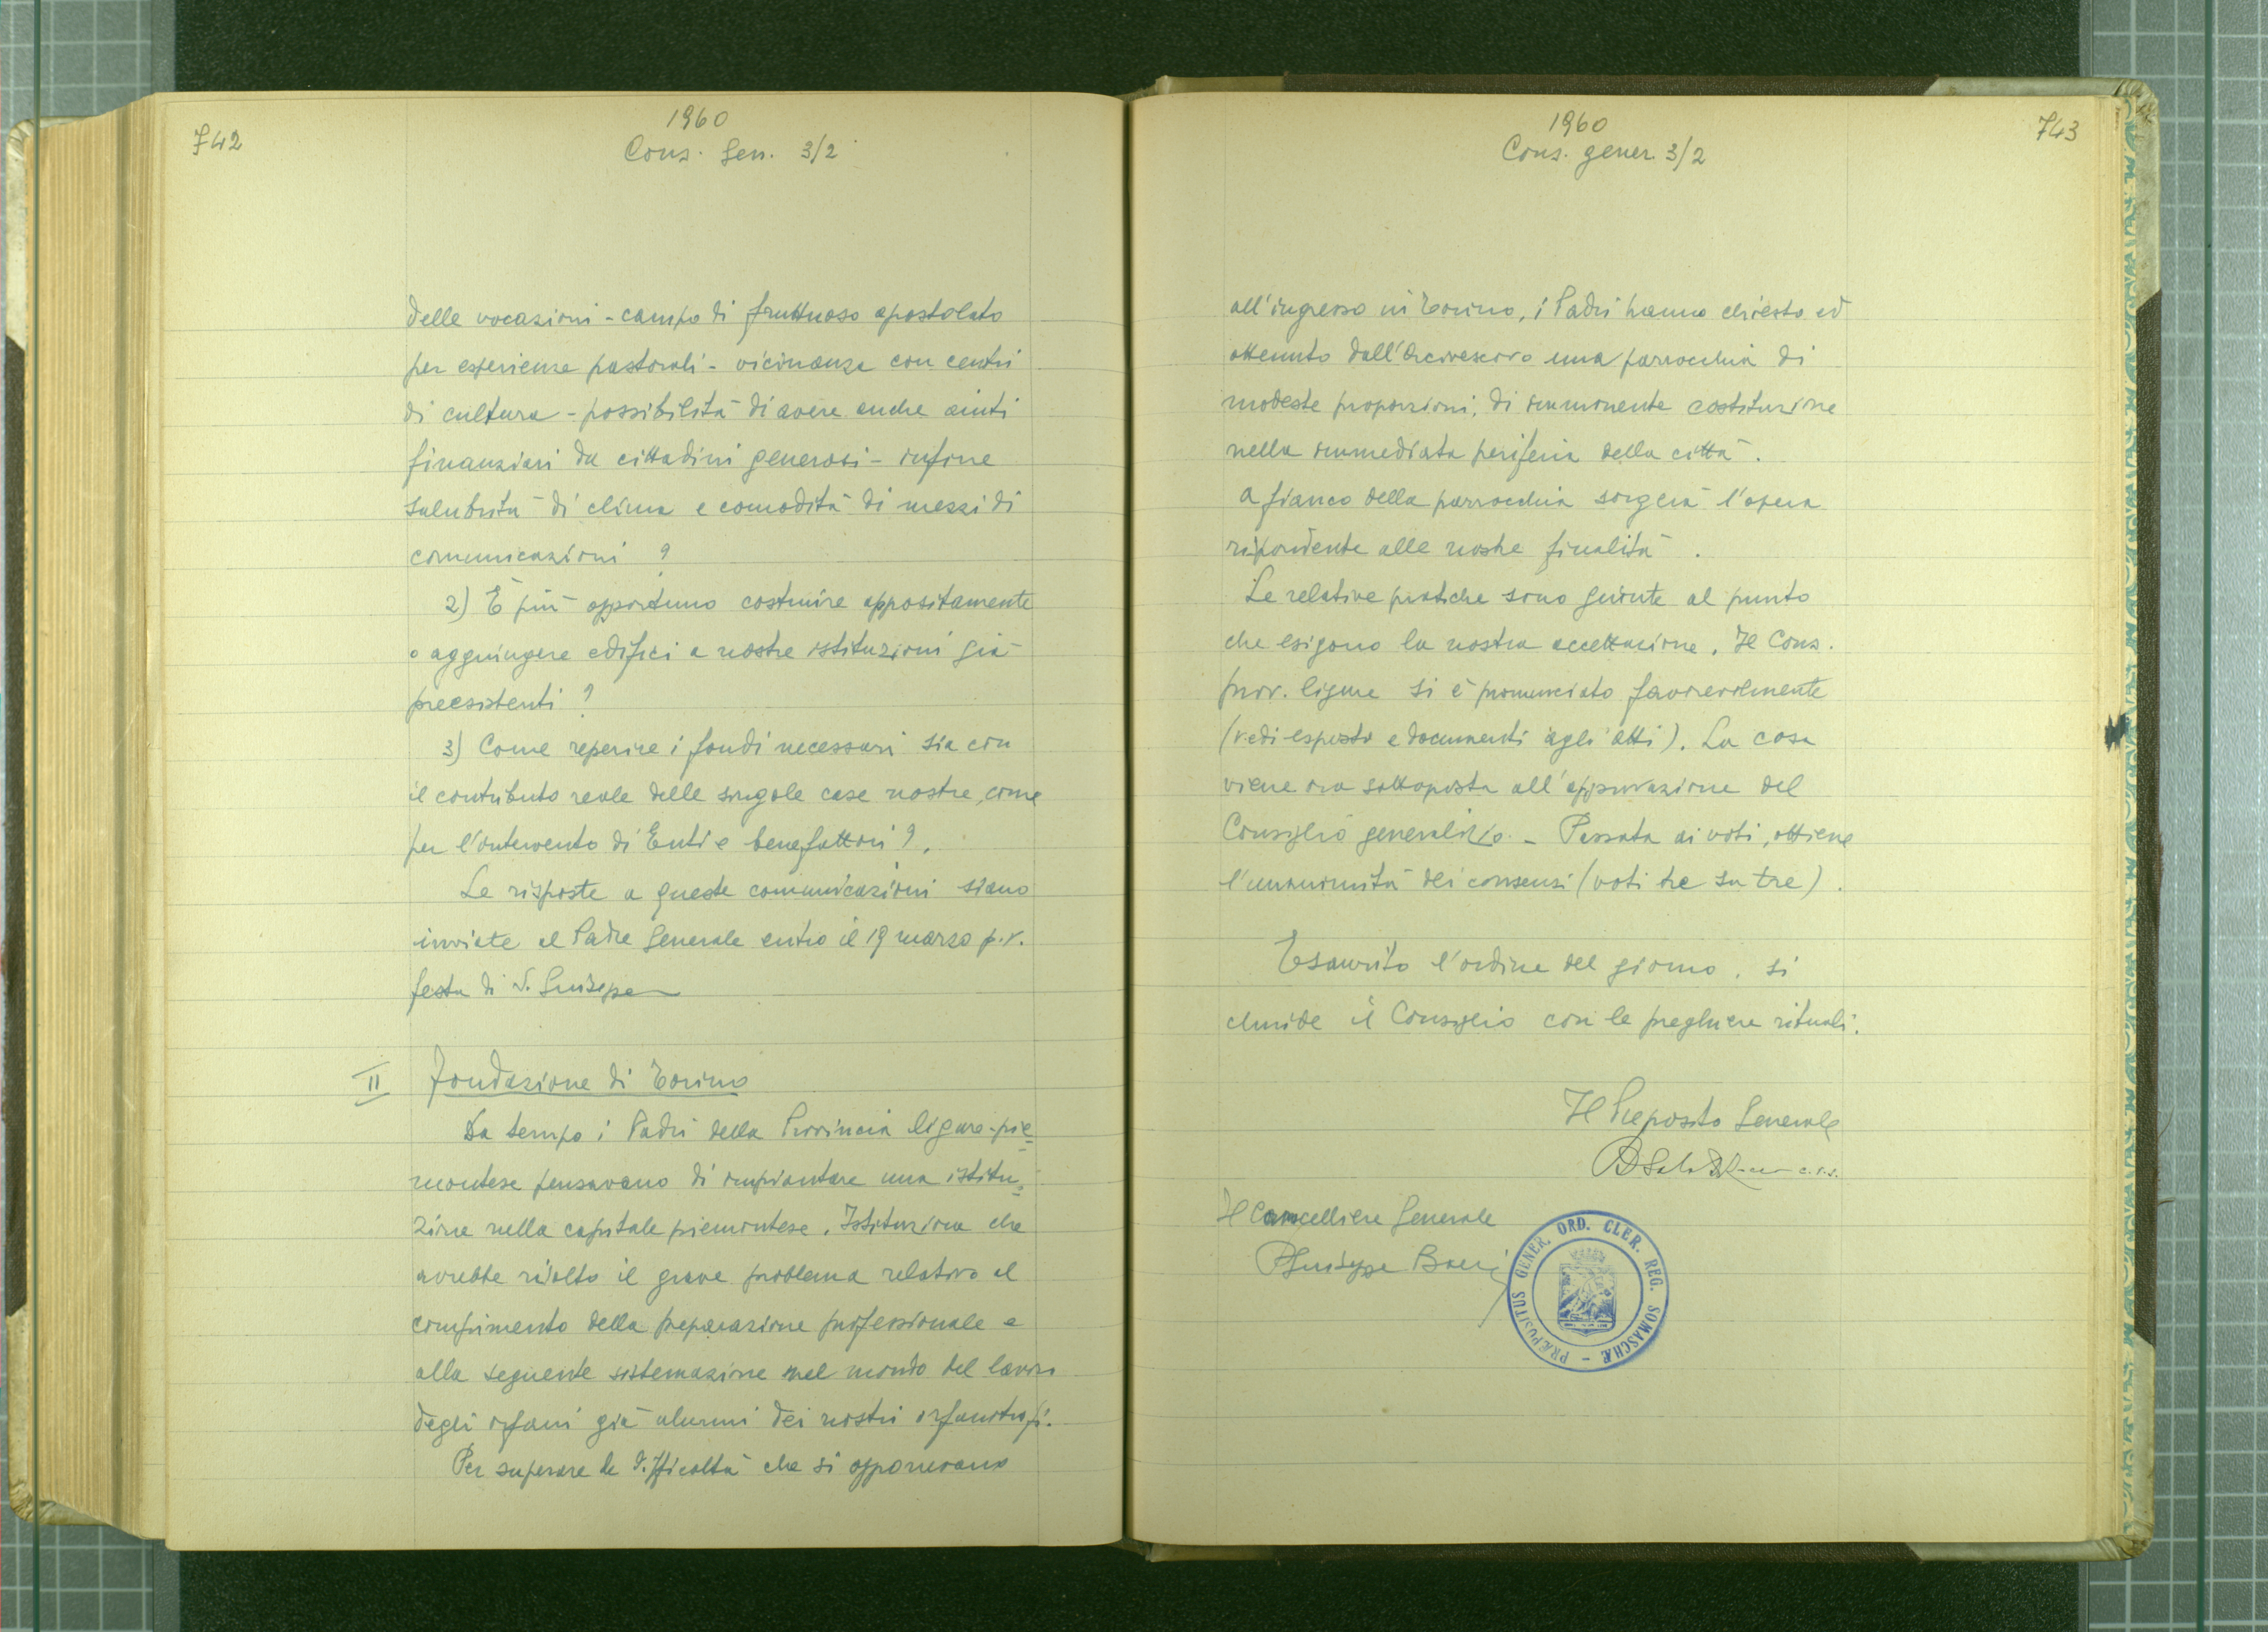 742
1960
Cons. Gen. 3/2
delle vocazioni - campo di fruttuoso apostolato
per esperienze pastorali - vicinanza con centri
di cultura - possibilità di avere anche aiuti
finanziari da cittadini generosi - infine
salubrità di clima e comodità di mezzi di
comunicazioni ?
2) È più opportuno costruire appositamente
o aggiungere edifici a nostre istituzioni già
preesistenti ?
3) Come reperire i fondi necessari sia con
il contributo reale delle singole case nostre, come
per l'intervento di Enti e benefattori ?.
Le risposte a queste comunicazioni siano
inviate al Padre Generale entro il 19 marzo p.v.
festa di S. Giuseppe
II Fondazione di Torino
Da tempo i Padri della Provincia ligure-pie=
montese pensavano di impiantare una istitu=
zione nella capitale piemontese. Istituzione che
avrebbe risolto il grave problema relativo al
compimento della preparazione professionale e
alla seguente sistemazione nel mondo del lavoro
degli orfani già alunni dei nostri orfanotrofi.
Per superare le difficoltà che si opponevano
743
1960
Cons. gener. 3/2
all'ingresso in Torino, i Padri hanno chiesto ed
ottenuto dall'Arcivescovo una parrocchia di
modeste proporzioni, di imminente costituzione
nella immediata periferia della città.
A fianco della parrocchia sorgerà l'opera
rispondente alle nostre finalità.
Le relative pratiche sono giunte al punto
che esigono la nostra accettazione. Il Cons.
prov. ligure si è pronunciato favorevolmente
(vedi esposto e documenti agli atti). La cosa
viene ora sottoposta all'approvazione del
Consiglio generalizio. - Passata ai voti, ottiene
l'unanimità dei consensi (voti tre su tre).
Esaurito l'ordine del giorno, si
chiude il Consiglio con le preghiere rituali.
Il Preposito Generale
c.r.s.
Il Cancelliere Generale
P. Giuseppe Boeri
PRÆPOSITUS GENER. ORD. CLER. REG. SOMASCHÆ -